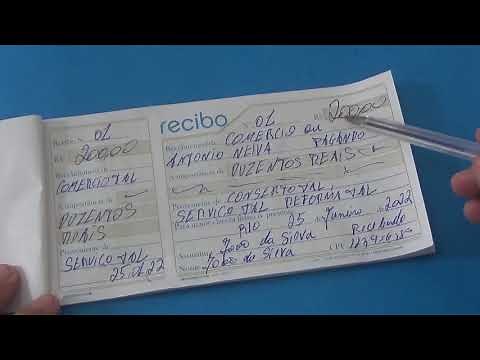 Recibo 01
R$ 200,00
COMERCIO TAL
A importância de
DUZENTOS
REAIS
Proveniente de
SERVIÇO TAL
25.01.22
recibo 01 R$ 200,00
COMERCIO OU
ANTONIO NEIVA PAGANDO
A importância de DUZENTOS REAIS
Proveniente de CONSERTO TAL,
SERVIÇO TAL REFORMA TAL
RIO 25 de Janeiro de 2022
Assinatura João da Silva Recibado
Nome João da Silva CPF